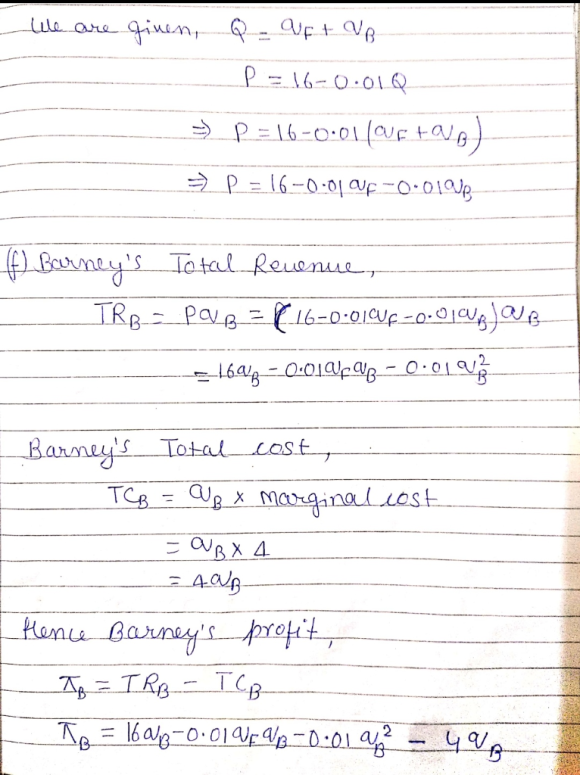 We are given, Q = qF + qB
P = 16-0.01Q
⇒ P = 16-0.01(qF + qB)
⇒ P = 16-0.01qF-0.01qB
(f) Barney's Total Revenue,
TRB = PqB = (16-0.01qF-0.01qB)qB
= 16qB - 0.01qFqB - 0.01 qB²
Barney's Total cost,
TCB = qB x marginal cost
= qB x 4
= 4qB
Hence Barney's profit,
πB = TRB - TCB
πB = 16qB-0.01qFqB-0.01 qB² - 4qB